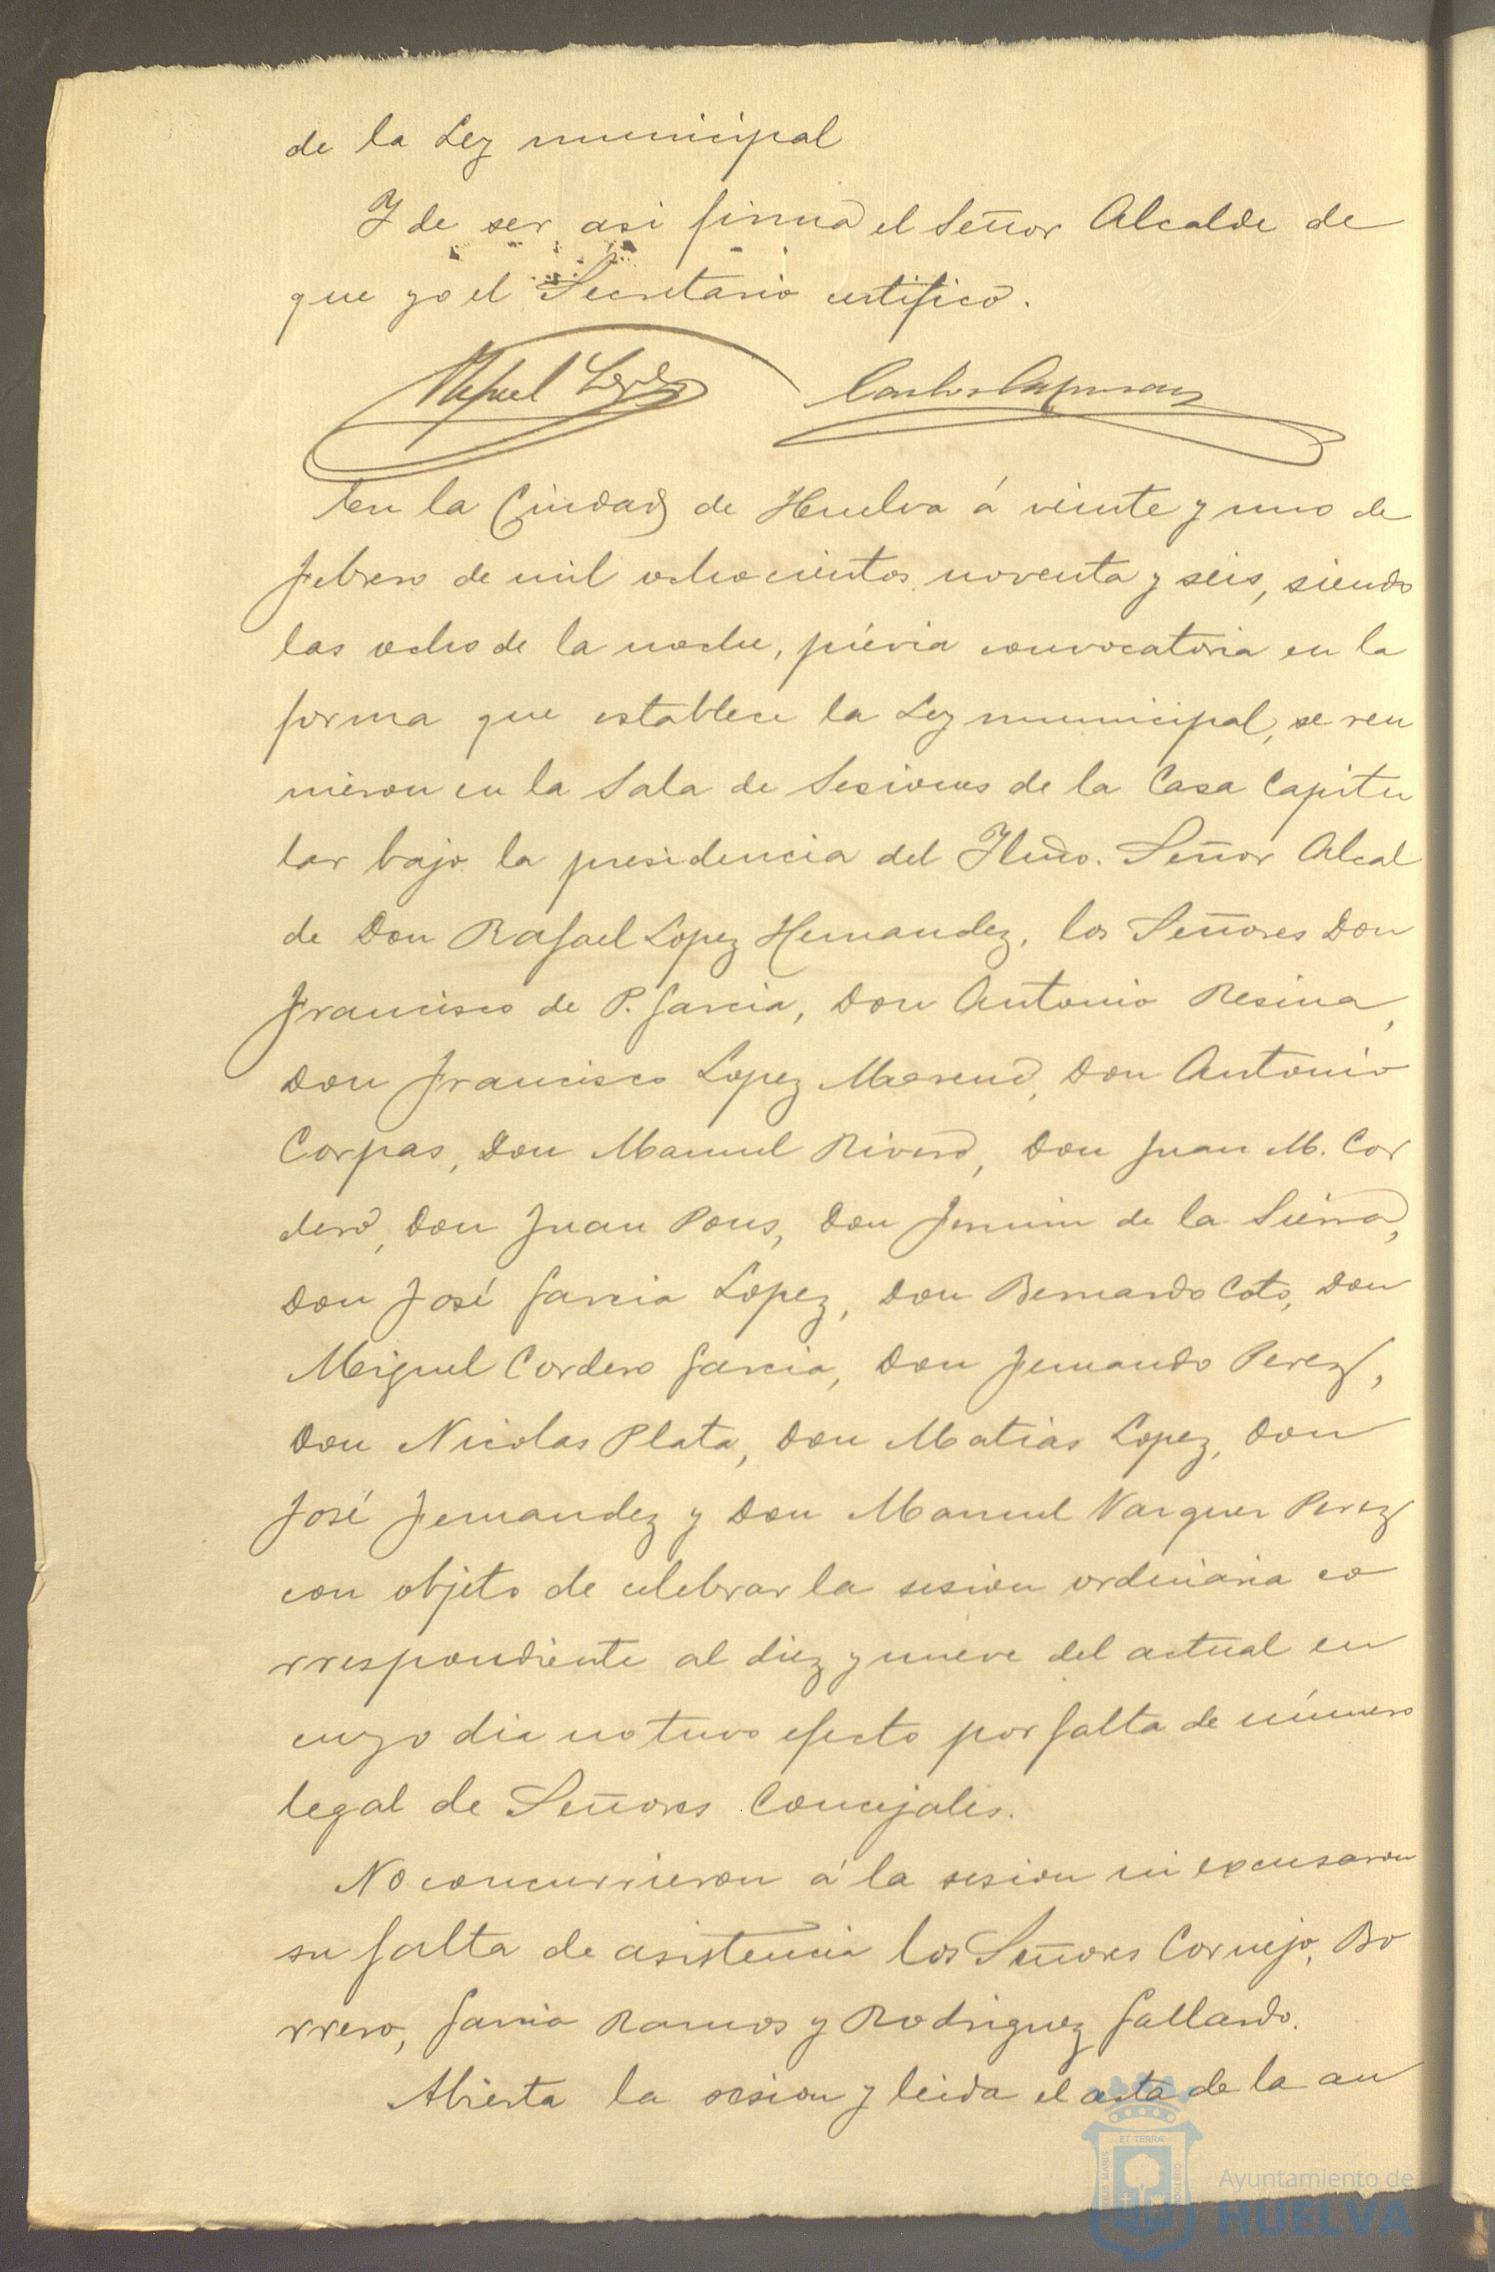 de la Ley municipal
Y de ser asi firma el Señor Alcalde de
que yo el Secretario certifico.
Rafael Lopez
En la Ciudad de Huelva á veinte y uno de
febrero de mil ochocientos noventa y seis, siendo
las ocho de la noche, prévia convocatoria en la
forma que establece la Ley municipal, se reu
nieron en la Sala de Sesiones de la Casa Capitu
lar bajo la presidencia del Iltmo. Señor Alcal
de Don Rafael Lopez Hernandez, los Señores Don
Francisco de P. Garcia, Don Antonio Resina,
Don Francisco Lopez Moreno, Don Antonio
Corpas, Don Manuel Rivero, Don Juan M. Cor
dero, Don Juan Pons, Don Fermin de la Sierra,
Don José Garcia Lopez, Don Bernardo Coto, Don
Miguel Cordero Garcia, Don Fernando Perez,
Don Nicolas Plata, Don Matias Lopez, Don
José Fernandez y Don Manuel Vazquez Perez
con objeto de celebrar la sesion ordinaria co
rrespondiente al diez y nueve del actual en
cuyo dia no tuvo efecto por falta de número
legal de Señores Concejales.
No concurrieron á la sesion ni excusaron
su falta de asistencia los Señores Cornejo, Bo
rrero, Garcia Ramos y Rodriguez Gallardo.
Abierta la sesion y leida el acta de la an
Ayuntamiento de
HUELVA